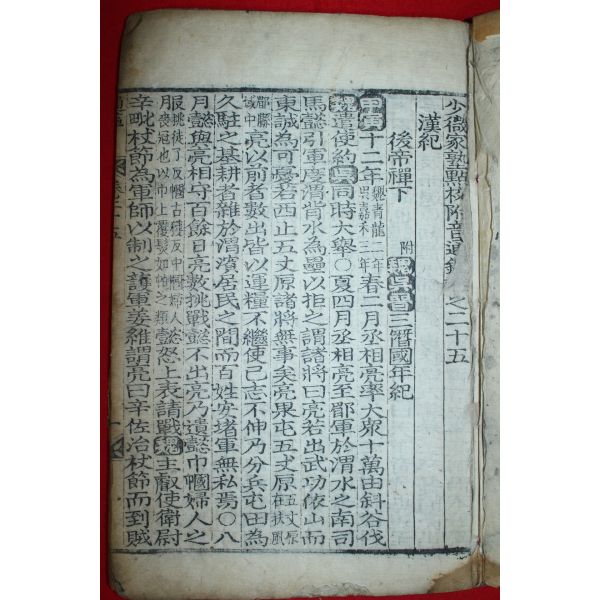 少微家塾點校附音通鑑 之二十五
漢紀
後帝禪下 附 魏吳晉三僭國年紀
甲寅十二年 魏青龍二年 吳嘉禾三年 春二月丞相亮率大衆十萬由斜谷伐
魏遣使約吳同時大擧○夏四月丞相亮至郿軍於渭水之南司
馬懿引軍度渭背水為壘以拒之謂諸將曰亮若出武功依山而
東誠為可憂若西止五丈原諸將無事矣亮果屯五丈原 五丈原在扶風
郿縣 亮以前者數出皆以運糧不繼使己志不伸乃分兵屯田為
久駐之基耕者雜於渭濱居民之間而百姓安堵軍無私焉○八
月懿與亮相守百餘日亮數挑戰懿不出亮乃遺懿巾幗婦人之
服 懿怒上表請戰魏主叡使衛尉
辛毗杖節為軍師以制之護軍姜維謂亮曰辛佐治杖節而到賊